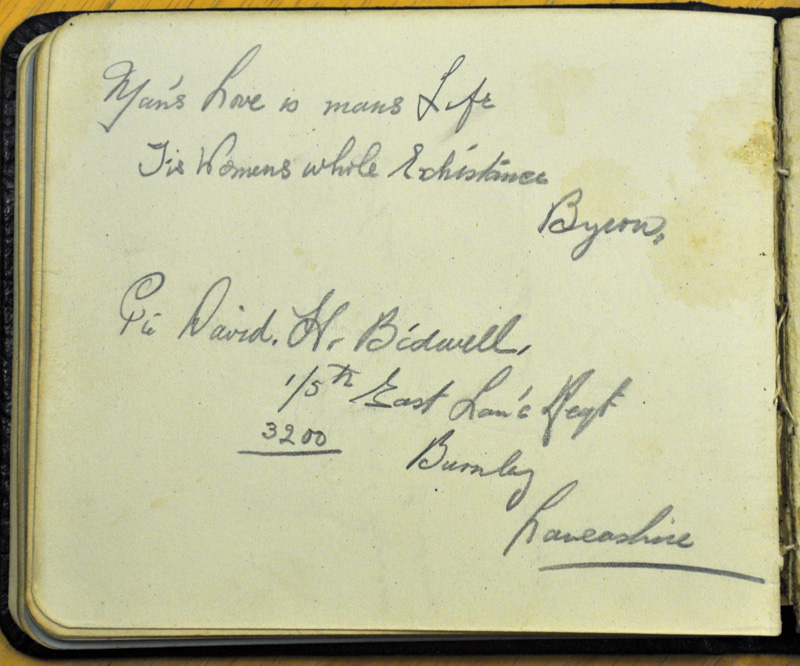 Man's Love is mans Life
Tis Womens whole Exhistance
Byron.
Pte David. H. Bidwell.
1/5th East Lan'c Regt
3200
Burnley
Lancashire